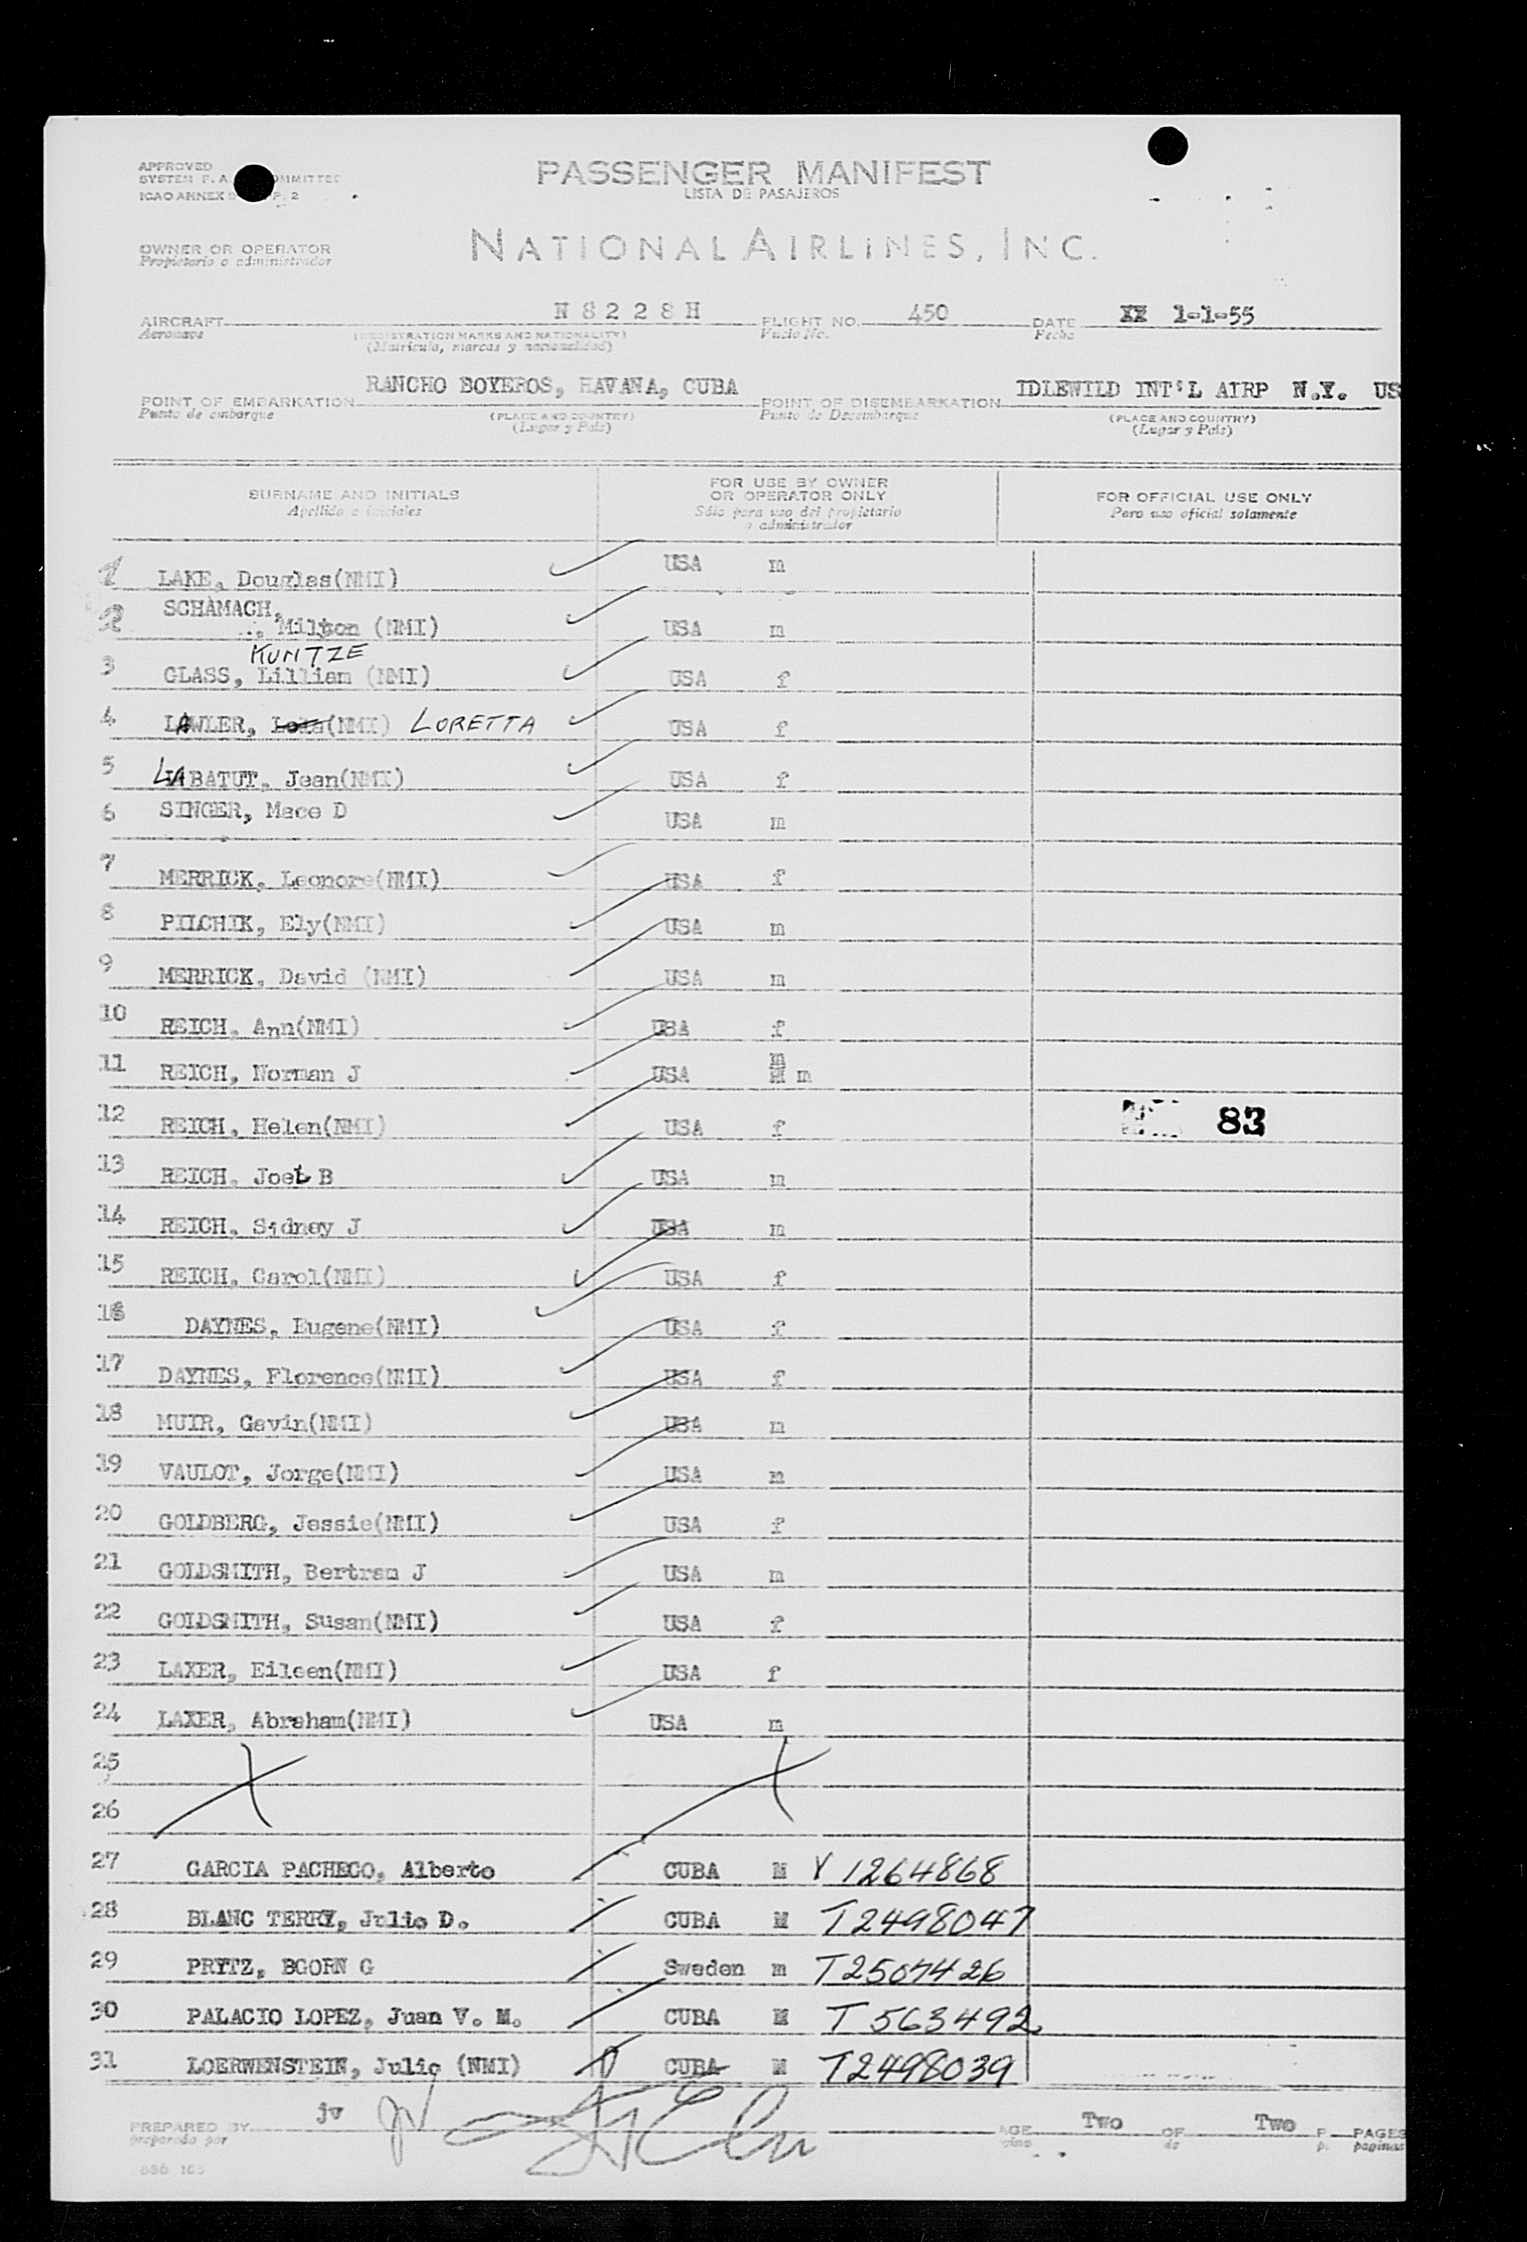 APPROVED
SYSTEM F. A.
ICAO ANNEX
PASSENGER MANIFEST
LISTA DE PASAJEROS
OWNER OR OPERATOR
Propietario o administrador
NATIONAL AIRLINES, INC.
AIRCRAFT N 8 2 2 8 H FLIGHT NO. 450 DATE XX 1-1-55
Aeronave (REGISTRATION MARKS AND NATIONALITY) Vuelo No. Fecha
(Matrícula, marcas y nacionalidad)
POINT OF EMBARKATION RANCHO BOYEROS, HAVANA, CUBA POINT OF DISEMBARKATION IDLEWILD INT'L AIRP N.Y. US
Punto de embarque (PLACE AND COUNTRY) Punto de Desembarque (PLACE AND COUNTRY)
(Lugar y País) (Lugar y País)
SURNAME AND INITIALS FOR USE BY OWNER OR OPERATOR ONLY FOR OFFICIAL USE ONLY
Apellido e iniciales Sólo para uso del propietario o administrador Para uso oficial solamente
1 LAKE, Douglas(NMI) USA m
2 SCHAMACH, Milton (NMI) USA m
KUNTZE
3 GLASS, Lillian (NMI) USA f
4 LAWLER, (NMI) LORETTA USA f
5 LABATUT, Jean(NMI) USA f
6 SINGER, Mace D USA m
7 MERRICK, Leonore(NMI) USA f
8 PILCHIK, Ely(NMI) USA m
9 MERRICK, David (NMI) USA m
10 REICH, Ann(NMI) USA f
11 REICH, Norman J USA m m
12 REICH, Helen(NMI) USA f 83
13 REICH, Joel B USA m
14 REICH, Sidney J USA m
15 REICH, Carol(NMI) USA f
16 DAYNES, Eugene(NMI) USA f
17 DAYNES, Florence(NMI) USA f
18 MUIR, Gavin(NMI) USA m
19 VAULOT, Jorge(NMI) USA m
20 GOLDBERG, Jessie(NMI) USA f
21 GOLDSMITH, Bertram J USA m
22 GOLDSMITH, Susan(NMI) USA f
23 LAXER, Eileen(NMI) USA f
24 LAXER, Abraham(NMI) USA m
25
26
27 GARCIA PACHECO, Alberto CUBA M V 1264868
28 BLANC TERRY, Julio D. CUBA M T2498047
29 PRYTZ, BGORN G Sweden m T2507426
30 PALACIO LOPEZ, Juan V. M. CUBA M T 563492
31 LOERWENSTEIN, Julio (NMI) CUBA M T2498039
PREPARED BY jv PAGE Two OF Two PAGES
preparado por de paginas